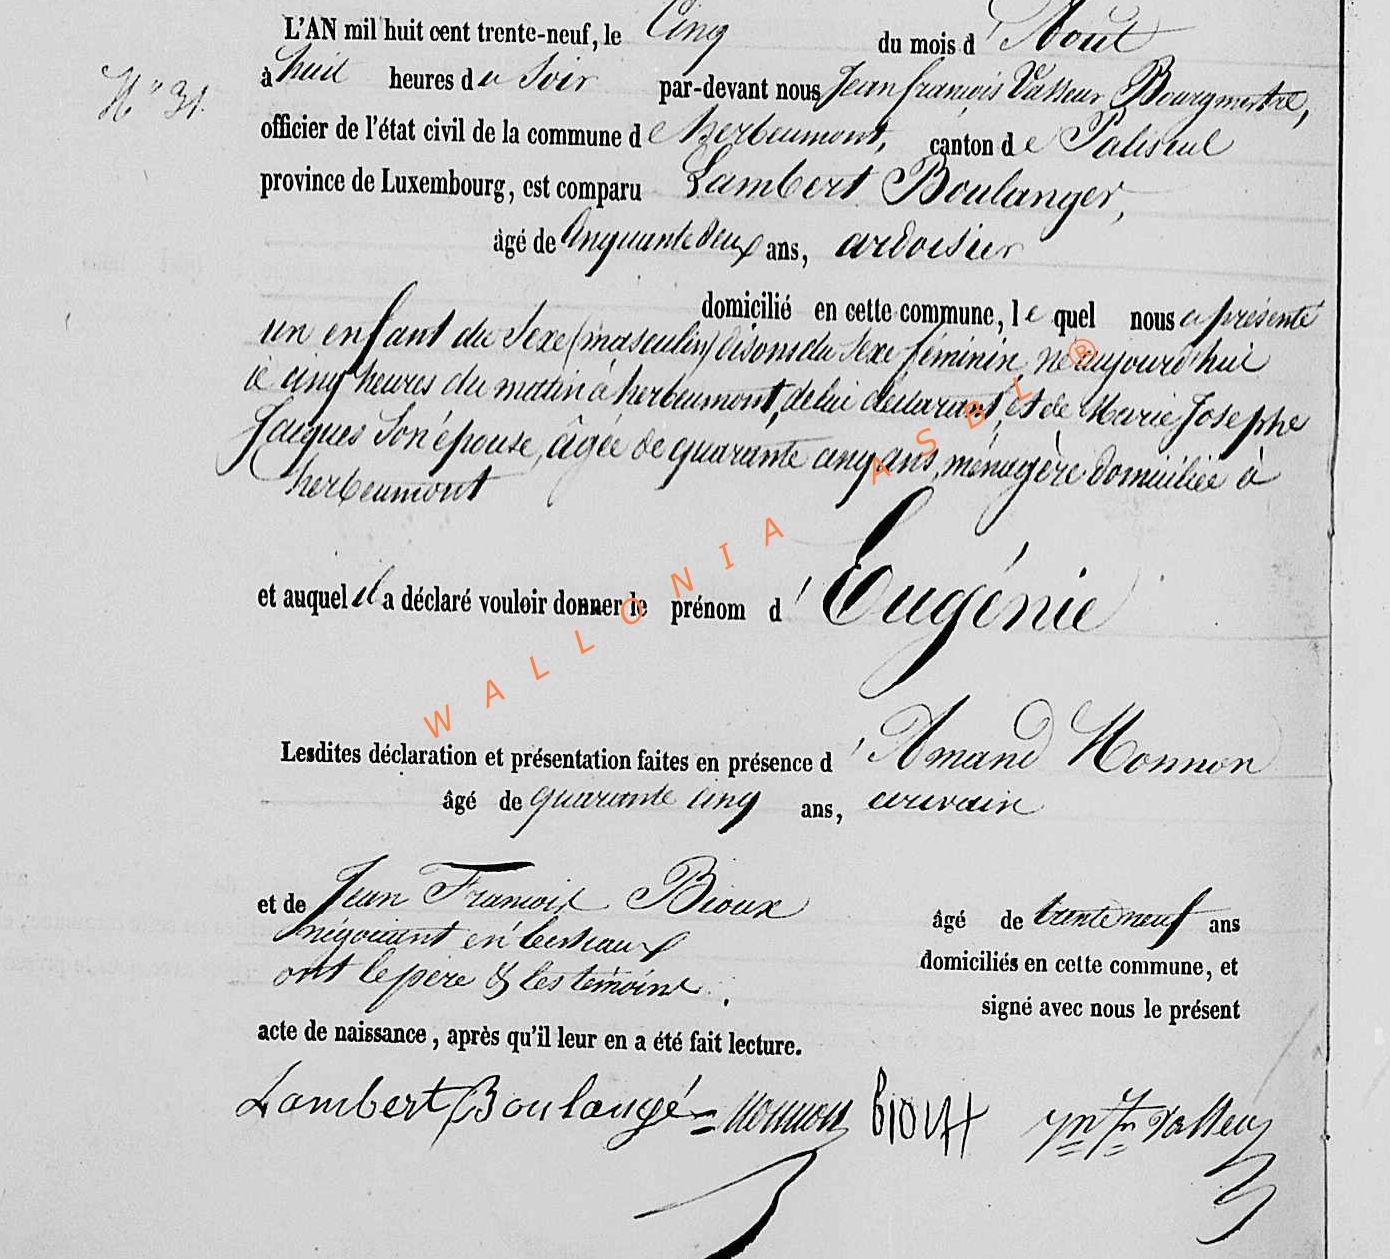 L'AN mil huit cent trente-neuf, le Cinq du mois d'Août
N° 31.
à huit heures du Soir par-devant nous Jean françois Vasseur Bourgmestre,
officier de l'état civil de la commune de herbeumont, canton de Paliseul
province de Luxembourg, est comparu Lambert Boulanger,
âgé de Cinquante deux ans, ardoisier
domicilié en cette commune, lequel nous a présenté
un enfant du Sexe (masculin) disons du Sexe féminin, né aujourd'hui
à cinq heures du matin à herbeumont, de lui déclarant, et de Marie Josephe
Jacques Son épouse, âgée de quarante cinq ans, ménagère domiciliée à
herbeumont
et auquel il a déclaré vouloir donner le prénom d'Eugénie
Lesdites déclaration et présentation faites en présence d'Amand Monnon
âgé de quarante cinq ans, écrivain
et de Jean François Bioux âgé de trente neuf ans
négociant en bestiaux domiciliés en cette commune, et
ont le père & les témoins signé avec nous le présent
acte de naissance, après qu'il leur en a été fait lecture.
Lambert Boulangé Monnon BIOUX Vasseur
WALLONIA ASBL ®